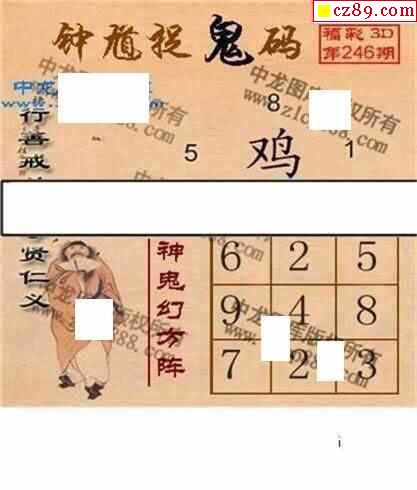 cz89.com
钟馗捉鬼码
福彩 3D
第246期
中龙
www.
中龙图库版权所有
8
5
鸡
1
行善戒
贤仁义
神鬼幻方阵
6 2 5
9 4 8
7 2 3
i